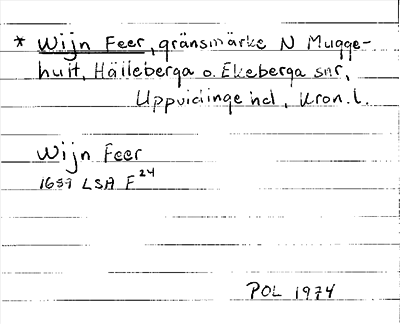 * Wijn Feer, gränsmärke N Mugge-
hult, Hälleberga o. Ekeberga snr,
Uppvidinge hd, Kron. l.
Wijn Feer
1689 LSA F 24
POL 1974